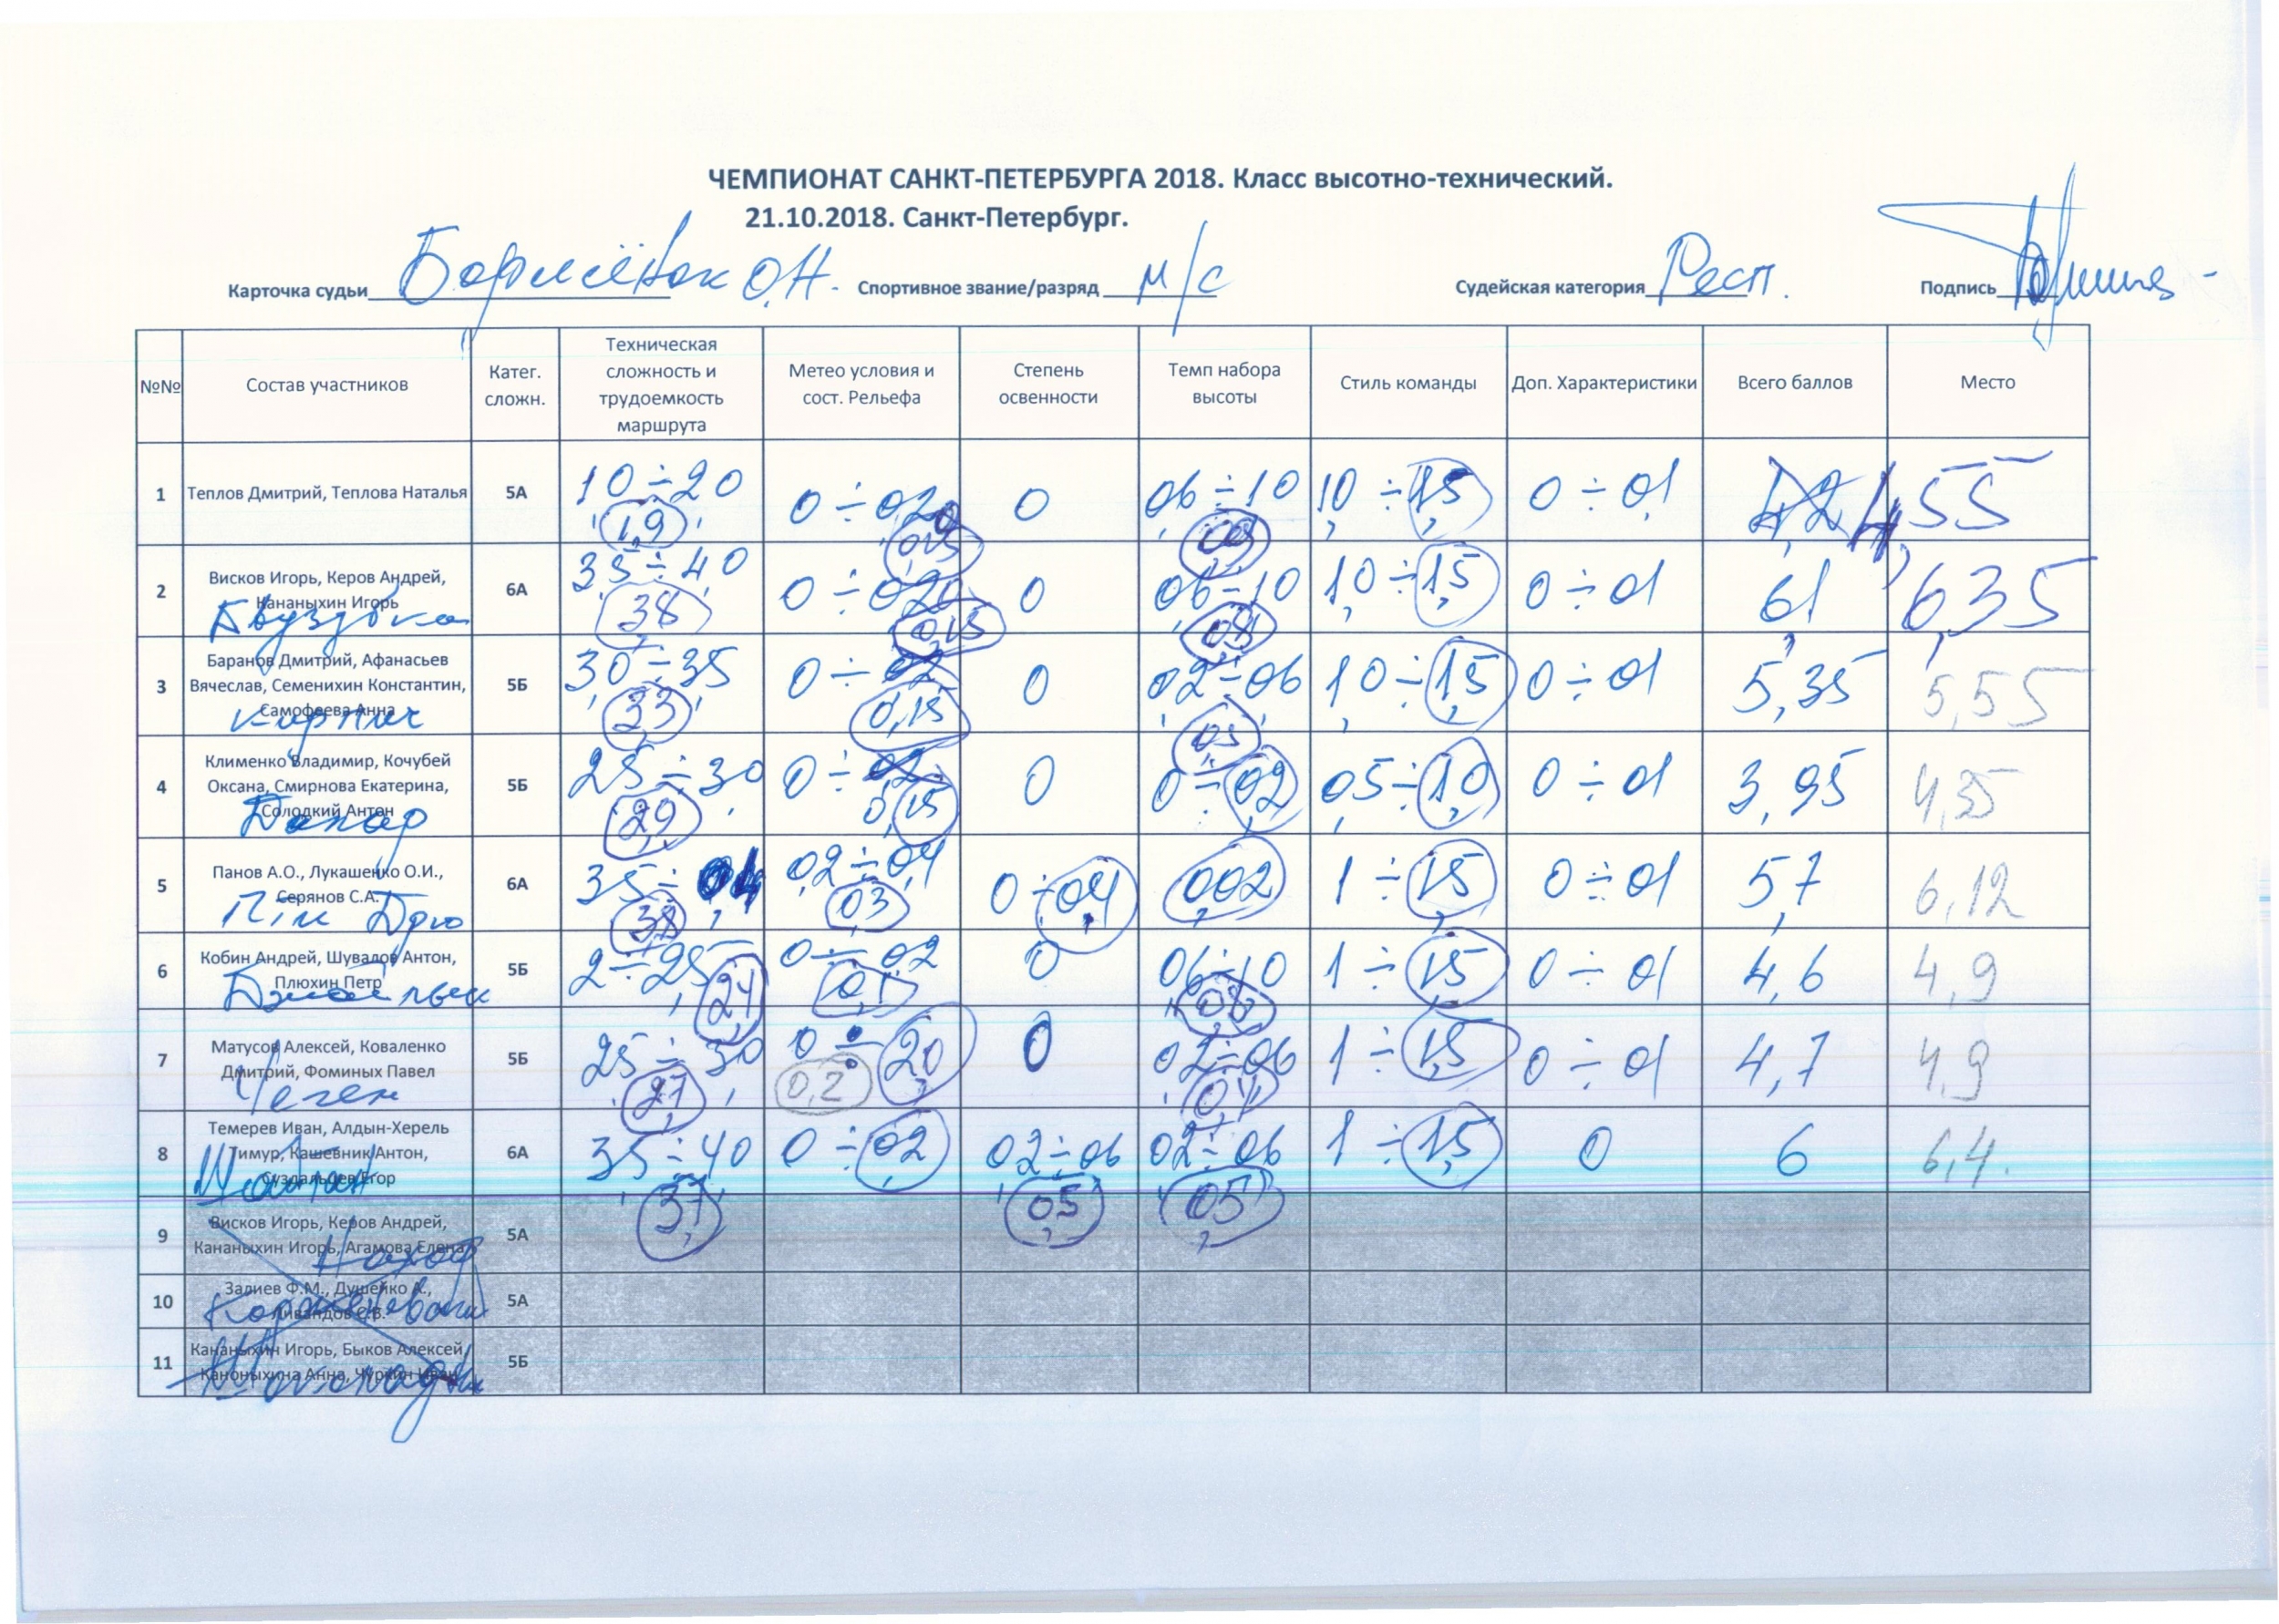 ЧЕМПИОНАТ САНКТ-ПЕТЕРБУРГА 2018. Класс высотно-технический.
21.10.2018. Санкт-Петербург.
Карточка судьи О.Н. Спортивное звание/разряд м/с Судейская категория Респ. Подпись
№№ Состав участников Катег. сложн. Техническая сложность и трудоемкость маршрута Метео условия и сост. Рельефа Степень освенности Темп набора высоты Стиль команды Доп. Характеристики Всего баллов Место
1 Теплов Дмитрий, Теплова Наталья 5А 1,0 ÷ 2,0 0 ÷ 0 0,6 ÷ 1,0 1,0 ÷ 1,5 0 ÷ 0,1 4,55
1,9
2 Висков Игорь, Керов Андрей, 6А 3,5 ÷ 4,0 0 ÷ 0 0,6 ÷ 1,0 1,0 ÷ 1,5 0 ÷ 0,1 6,1 6,35
Кананыхин Игорь 3,8 0,15
3 Баранов Дмитрий, Афанасьев 5Б 3,0 ÷ 3,5 0 ÷ 0 0,2 ÷ 0,6 1,0 ÷ 1,5 0 ÷ 0,1 5,35 5,55
Вячеслав, Семенихин Константин,
Самофеева Анна 3,3 0,15 0,5
Кирпич
4 Клименко Владимир, Кочубей 5Б 2,5 ÷ 3,0 0 ÷ 0,15 0 0 ÷ 0,2 0,5 ÷ 1,0 0 ÷ 0,1 3,95 4,35
Оксана, Смирнова Екатерина,
Солодкий Антон 2,9
5 Панов А.О., Лукашенко О.И., 6А 3,5 ÷ 0,2 ÷ 0,4 0 ÷ 0,4 0,02 1 ÷ 1,5 0 ÷ 0,1 5,7 6,12
Серянов С.А. 0,3
6 Кобин Андрей, Шувалов Антон, 5Б 2 ÷ 2,5 0 ÷ 0,2 0 0,6 ÷ 1,0 1 ÷ 1,5 0 ÷ 0,1 4,6 4,9
Плюхин Петр 2,4 0,1 0,8
7 Матусов Алексей, Коваленко 5Б 2,5 ÷ 3,0 0 ÷ 2,0 0 0,2 ÷ 0,6 1 ÷ 1,5 0 ÷ 0,1 4,7 4,9
Дмитрий, Фоминых Павел 2,7 0,2 0,4
Чегем
8 Темерев Иван, Алдын-Херель 6А 3,5 ÷ 4,0 0 ÷ 0,2 0,2 ÷ 0,6 0,2 ÷ 0,6 1 ÷ 1,5 0 6 6,4.
Тимур, Кашевник Антон,
Суздальцев Егор 3,7 0,5 0,5
9 Висков Игорь, Керов Андрей, 5А
Кананыхин Игорь, Агамова Елена
10 Залиев Ф.М., Душейко А., 5А
11 Кананыхин Игорь, Быков Алексей, 5Б
Каноныхина Анна, Чуркин Иван